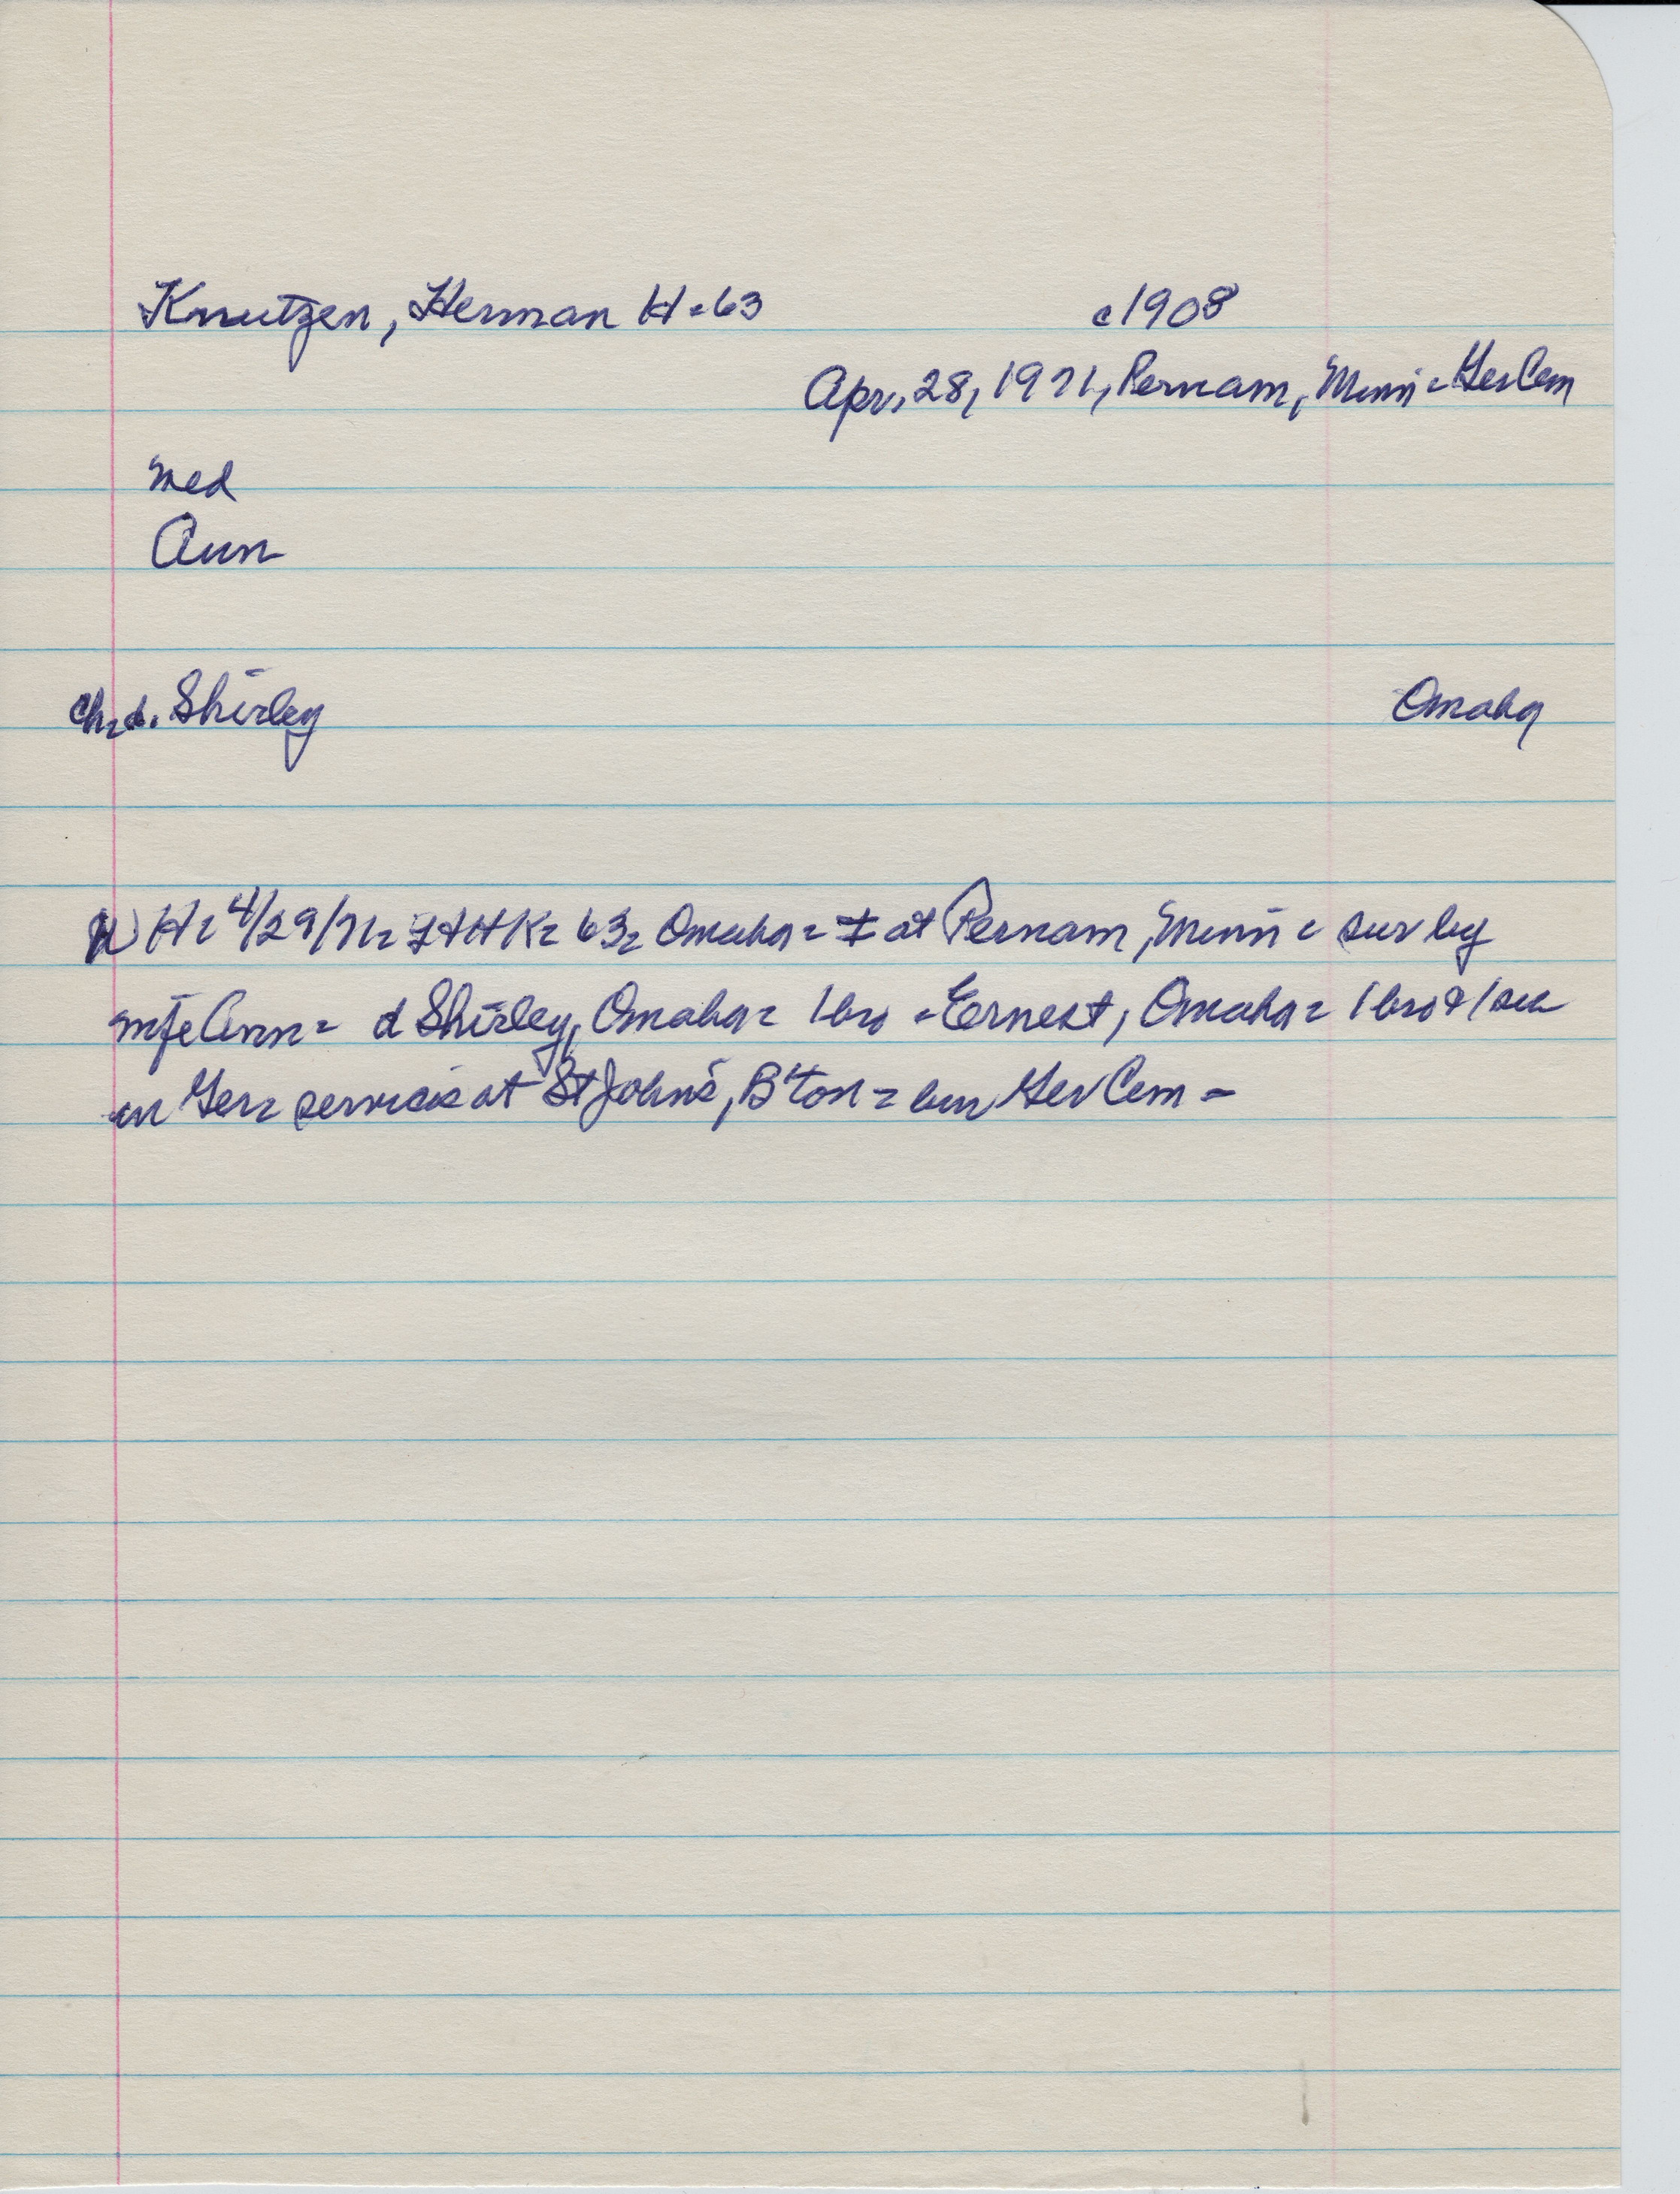 Knutzen, Herman H - 63 c1908
Apr, 28, 1971, Pernam, Minn - Ger Cem
med
Ann
Ch - d. Shirley Omaha
WH - 4/29/71 - HHK - 63 - Omaha = ‡ at Pernam, Minn - sur by
wife Ann = d Shirley, Omaha = 1 bro - Ernest, Omaha = 1 bro & 1 sis
in Ger = services at St John's, B'ton = bur Ger Cem -